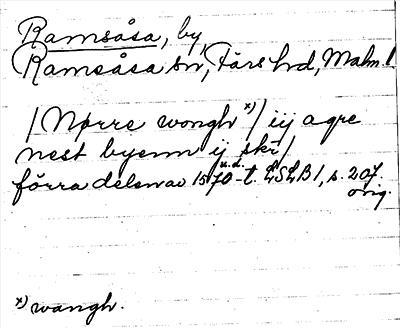 Ramsåsa, by,
Ramsåsa sn, Färs hd, Malm. l.
/ Nørre wongh x) / iij agre
nest byenn ij skr /
förra delen av 1570-t. u.d. LSLB 1, s. 207.
orig.
x) wangh.